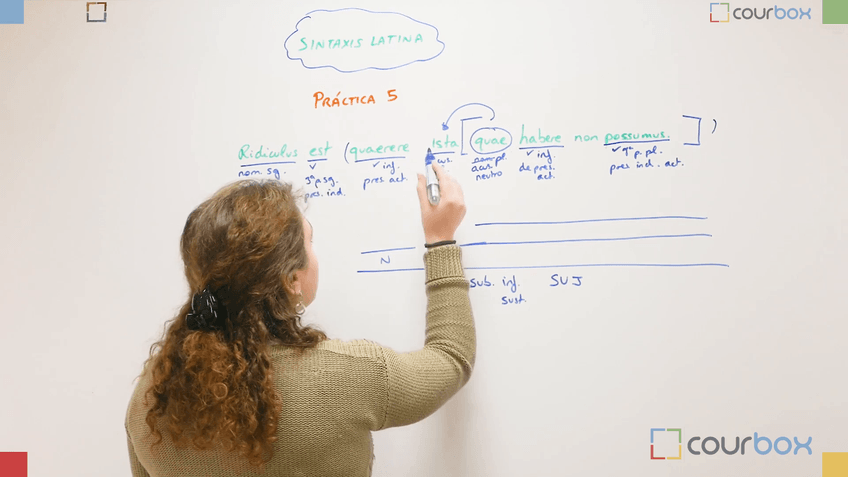 courbox
SINTAXIS LATINA
PRÁCTICA 5
Ridiculus est (quaerere ista [quae habere non possumus.])
nom. sg. v v inf. acus. v inf. v 1ª p. pl.
3ª p sg. pres. act. acus. de pres. pres. ind. act.
pres. ind. neutro act.
N
sub. inf. SUJ
sust.
courbox